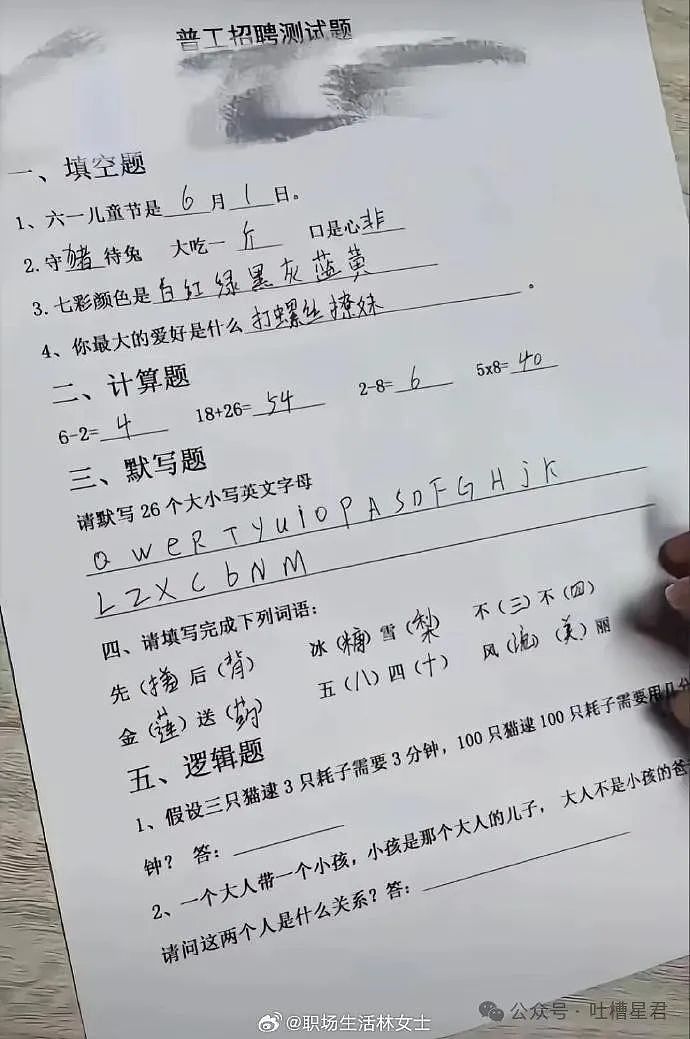 普工招聘测试题
一、填空题
1、六一儿童节是 6 月 1 日。
2.守猪待兔 大吃一斤 口是心非
3.七彩颜色是白红绿黑灰蓝黄
4、你最大的爱好是什么打螺丝撩妹。
二、计算题
6-2=4 18+26=54 2-8=6 5x8=40
三、默写题
请默写26个大小写英文字母
Q W e R T y u i O P A S D F G H j K
L Z X C b N M
四、请填写完成下列词语:
先()后(背) 冰(糖)雪(梨) 不(三)不(四)
金(莲)送(药) 五(八)四(十) 风(流)(美)丽
五、逻辑题
1、假设三只猫逮3只耗子需要3分钟,100只猫逮100只耗子需要用几分
钟? 答:
2、一个大人带一个小孩,小孩是那个大人的儿子, 大人不是小孩的爸
请问这两个人是什么关系?答:
@职场生活林女士
公众号·吐槽星君